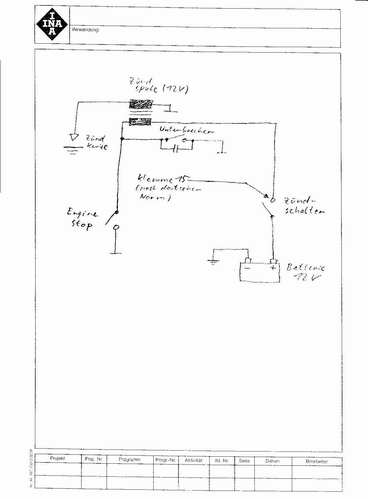 INA
INA
Verwendung:
Zünd
spule (12V)
Unterbrecher
Zünd
kerze
Klemme 15
(nach deutscher
Norm)
Zünd-
schalter
Engine
Stop
Batterie
12V
- +
Projekt Proj. Nr. Programm Progr.-Nr. Aktivität Bd. Nr. Seite Datum Bearbeiter